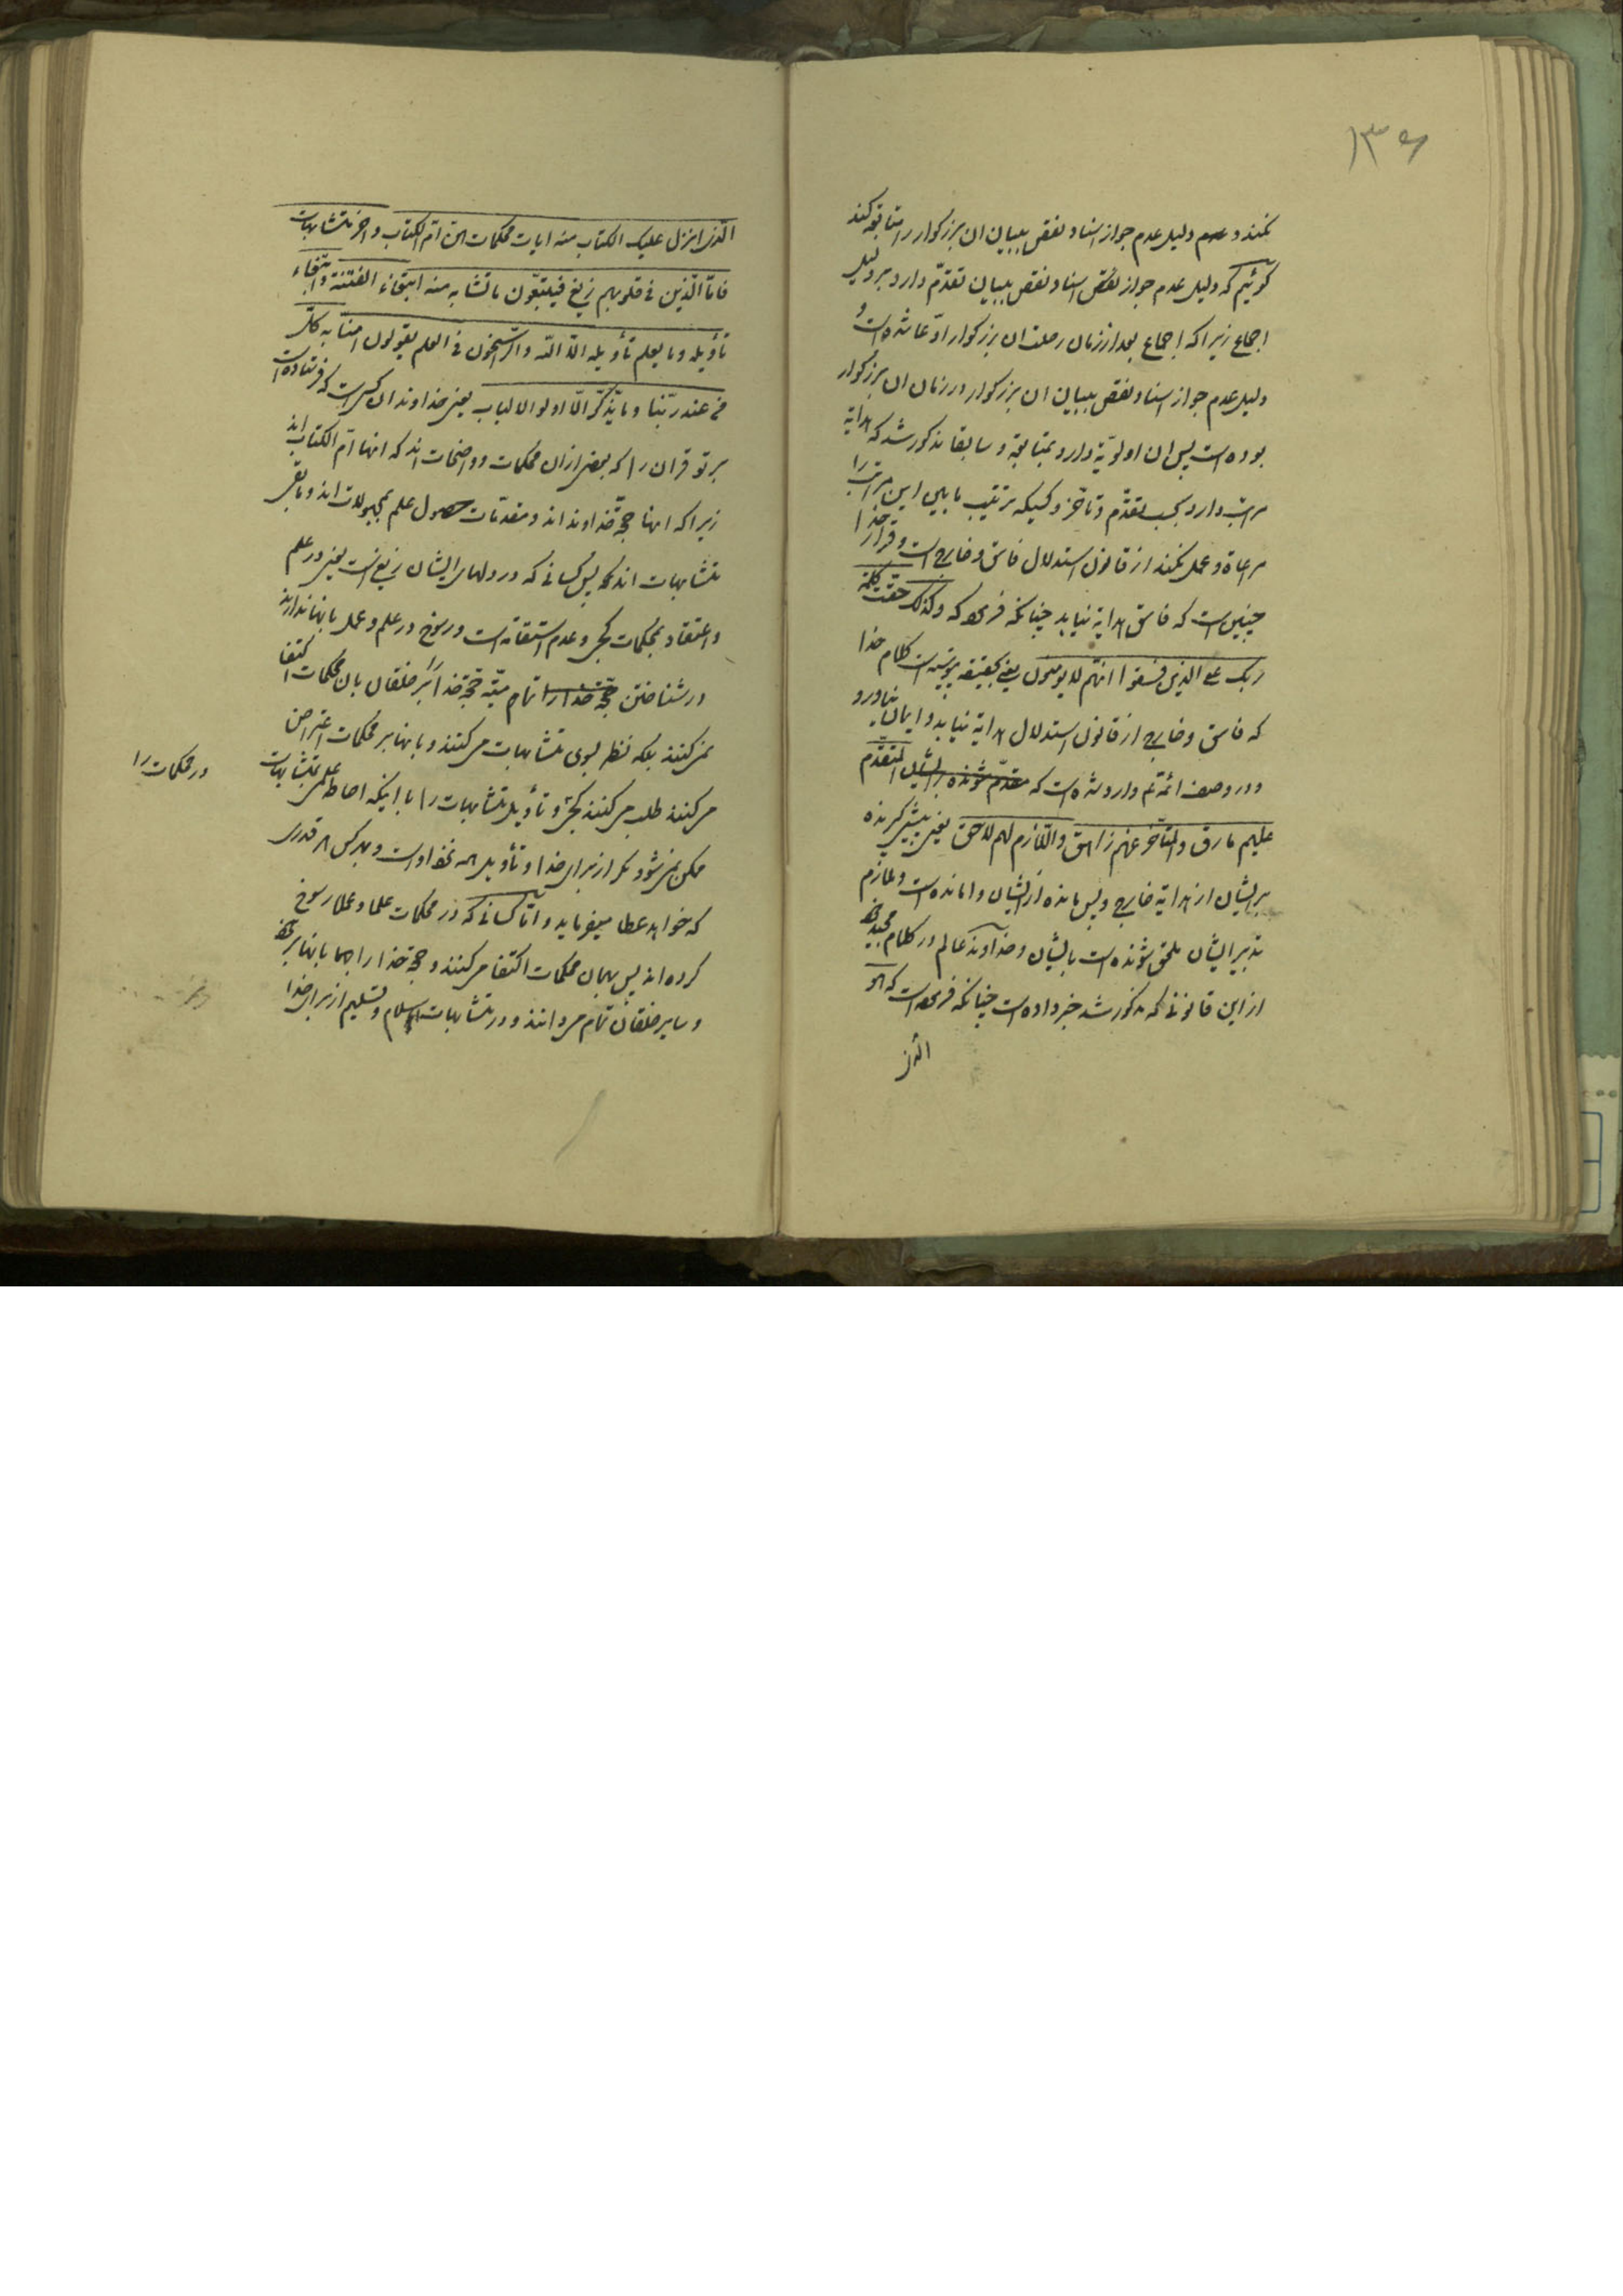 ۱۳۶
نکنند و دلیل عدم جواز اسناد نقص ببیان ان بزرکوار را متابعة کنند
کوئیم که دلیل عدم جواز نقص اسناد نقص ببیان تقدّم دارد بر دلیل
اجماع زیرا که اجماع بعد از زمان رحلت ان بزرکوار ادّعا شده است و
دلیل عدم جواز اسناد نقص ببیان ان بزرکوار در زمان ان بزرکوار
بوده است پس ان اولویّة دارد بمتابعة و سابقا مذکور شد که هدایة
مراتب دارد بحسب تقدّم و تأخّر و کسیکه ترتیب مابین این مراتب را
مراعاة و عمل نکند از قانون استدلال فاسق و خارج است و قرار خدا
چنین است که فاسق هدایة نیابد چنانکه فرموده که وکذلک حقّت کلمة
ربک علی الذین فسقوا انهّم لا یومنون یعنی بحقیقه پیوسته است کلام خدا
که فاسق و خارج از قانون استدلال هدایة نیابد و ایمان نیاورد
و در وصف ائمّه وارد شده است که مقدّم شونده بر ایشان المتقدّم
علیهم مارق والمتأخّر عنهم زاهق واللّازم لهم لاحق یعنی پیشی کیرنده
بر ایشان از هدایة خارج و پس مانده از ایشان وامانده است و ملازم
تدبیر ایشان ملحق شونده است بایشان و خداوند عالم در کلام مجید خود
از این قانونی که مذکور شد خبر داده است چنانکه فرموده است که هو
الّذی
الّذی انزل علیک الکتاب منه ایات محکمات هنّ امّ الکتاب واخر متشابهات
فامّا الّذین فی قلوبهم زیغ فیتّبعون ما تشابه منه ابتغاء الفتنة وابتغاء
تأویله وما یعلم تأویله الّا اللّه والرّاسخون فی العلم یقولون امنّا به کلّ
من عند ربّنا وما یذّکّر الّا اولوا الالباب یعنی خداوند ان کسی است که فرستاده است
بر تو قران را که بعضی از ان محکمات و واضحات اند که انها امّ الکتاب اند
زیرا که انها حجّة خداوند اند و مقدّمات حصول علم بمجهولات اند و مابقی
متشابهات اند پس کسانی که در دلهای ایشان زیغ است یعنی در علم
و اعتقاد بمحکمات کجی و عدم استقامة است و رسوخ در علم و عمل بانها ندارند
در شناختن حجّة خدا را تمام میّته حجّة خدا بر خلقان بان محکمات اکتفا
نمی کنند بلکه نظر بسوی متشابهات می کنند و بانها بر محکمات اعتراض
می کنند طلب می کنند کجی و تأویل متشابهات را با اینکه احاطه علمی بمتشابهات
ممکن نمی شود مکر از برای خدا و تأویل همه نزد اوست و بهر کس هر قدری
که خواهد عطا میفرماید و امّا کسانی که در محکمات علما و عملا رسوخ
کرده اند پس بهمان محکمات اکتفا می کنند و حجّة خدا را بانها بر خود
و سایر خلقان تمام می دانند و در متشابهات اسلام و تسلیم از برای خدا
در محکمات را